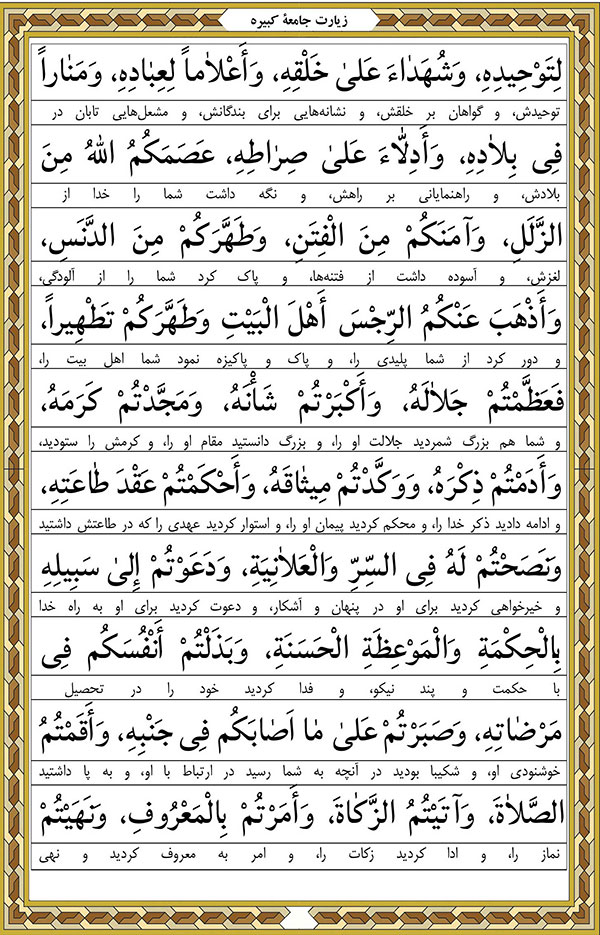 زیارت جامعهٔ کبیره
لِتَوْحِیدِهِ، وَشُهَدٰاءَ عَلیٰ خَلْقِهِ، وَأَعْلاٰماً لِعِبٰادِهِ، وَمَنٰاراً
توحیدش، و گواهان بر خلقش، و نشانه‌هایی برای بندگانش، و مشعل‌هایی تابان در
فِی بِلاٰدِهِ، وَأَدِلّٰاءَ عَلیٰ صِرٰاطِهِ، عَصَمَکُمُ اللهُ مِنَ
بلادش، و راهنمایانی بر راهش، و نگه داشت شما را خدا از
الزَّلَلِ، وَآمَنَکُمْ مِنَ الْفِتَنِ، وَطَهَّرَکُمْ مِنَ الدَّنَسِ،
لغزش، و آسوده داشت از فتنه‌ها، و پاک کرد شما را از آلودگی،
وَأَذْهَبَ عَنْکُمُ الرِّجْسَ أَهْلَ الْبَیْتِ وَطَهَّرَکُمْ تَطْهِیراً،
و دور کرد از شما پلیدی را، و پاک و پاکیزه نمود شما اهل بیت را،
فَعَظَّمْتُمْ جَلاٰلَهُ، وَأَکْبَرْتُمْ شَأْنَهُ، وَمَجَّدْتُمْ کَرَمَهُ،
و شما هم بزرگ شمردید جلالت او را، و بزرگ دانستید مقام او را، و کرمش را ستودید،
وَأَدَمْتُمْ ذِکْرَهُ، وَوَکَّدْتُمْ مِیثٰاقَهُ، وَأَحْکَمْتُمْ عَقْدَ طٰاعَتِهِ،
و ادامه دادید ذکر خدا را، و محکم کردید پیمان او را، و استوار کردید عهدی را که در طاعتش داشتید
وَنَصَحْتُمْ لَهُ فِی السِّرِّ وَالْعَلاٰنِیَةِ، وَدَعَوْتُمْ إِلیٰ سَبِیلِهِ
و خیرخواهی کردید برای او در پنهان و آشکار، و دعوت کردید برای او به راه خدا
بِالْحِکْمَةِ وَالْمَوْعِظَةِ الْحَسَنَةِ، وَبَذَلْتُمْ أَنْفُسَکُم فِی
با حکمت و پند نیکو، و فدا کردید خود را در تحصیل
مَرْضٰاتِهِ، وَصَبَرْتُمْ عَلیٰ مٰا اَصٰابَکُم فِی جَنْبِهِ، وَأَقَمْتُمُ
خوشنودی او، و شکیبا بودید در آنچه به شما رسید در ارتباط با او، و به پا داشتید
الصَّلاٰةَ، وَآتَیْتُمُ الزَّکٰاةَ، وَأَمَرْتُمْ بِالْمَعْرُوفِ، وَنَهَیْتُمْ
نماز را، و ادا کردید زکات را، و امر به معروف کردید و نهی